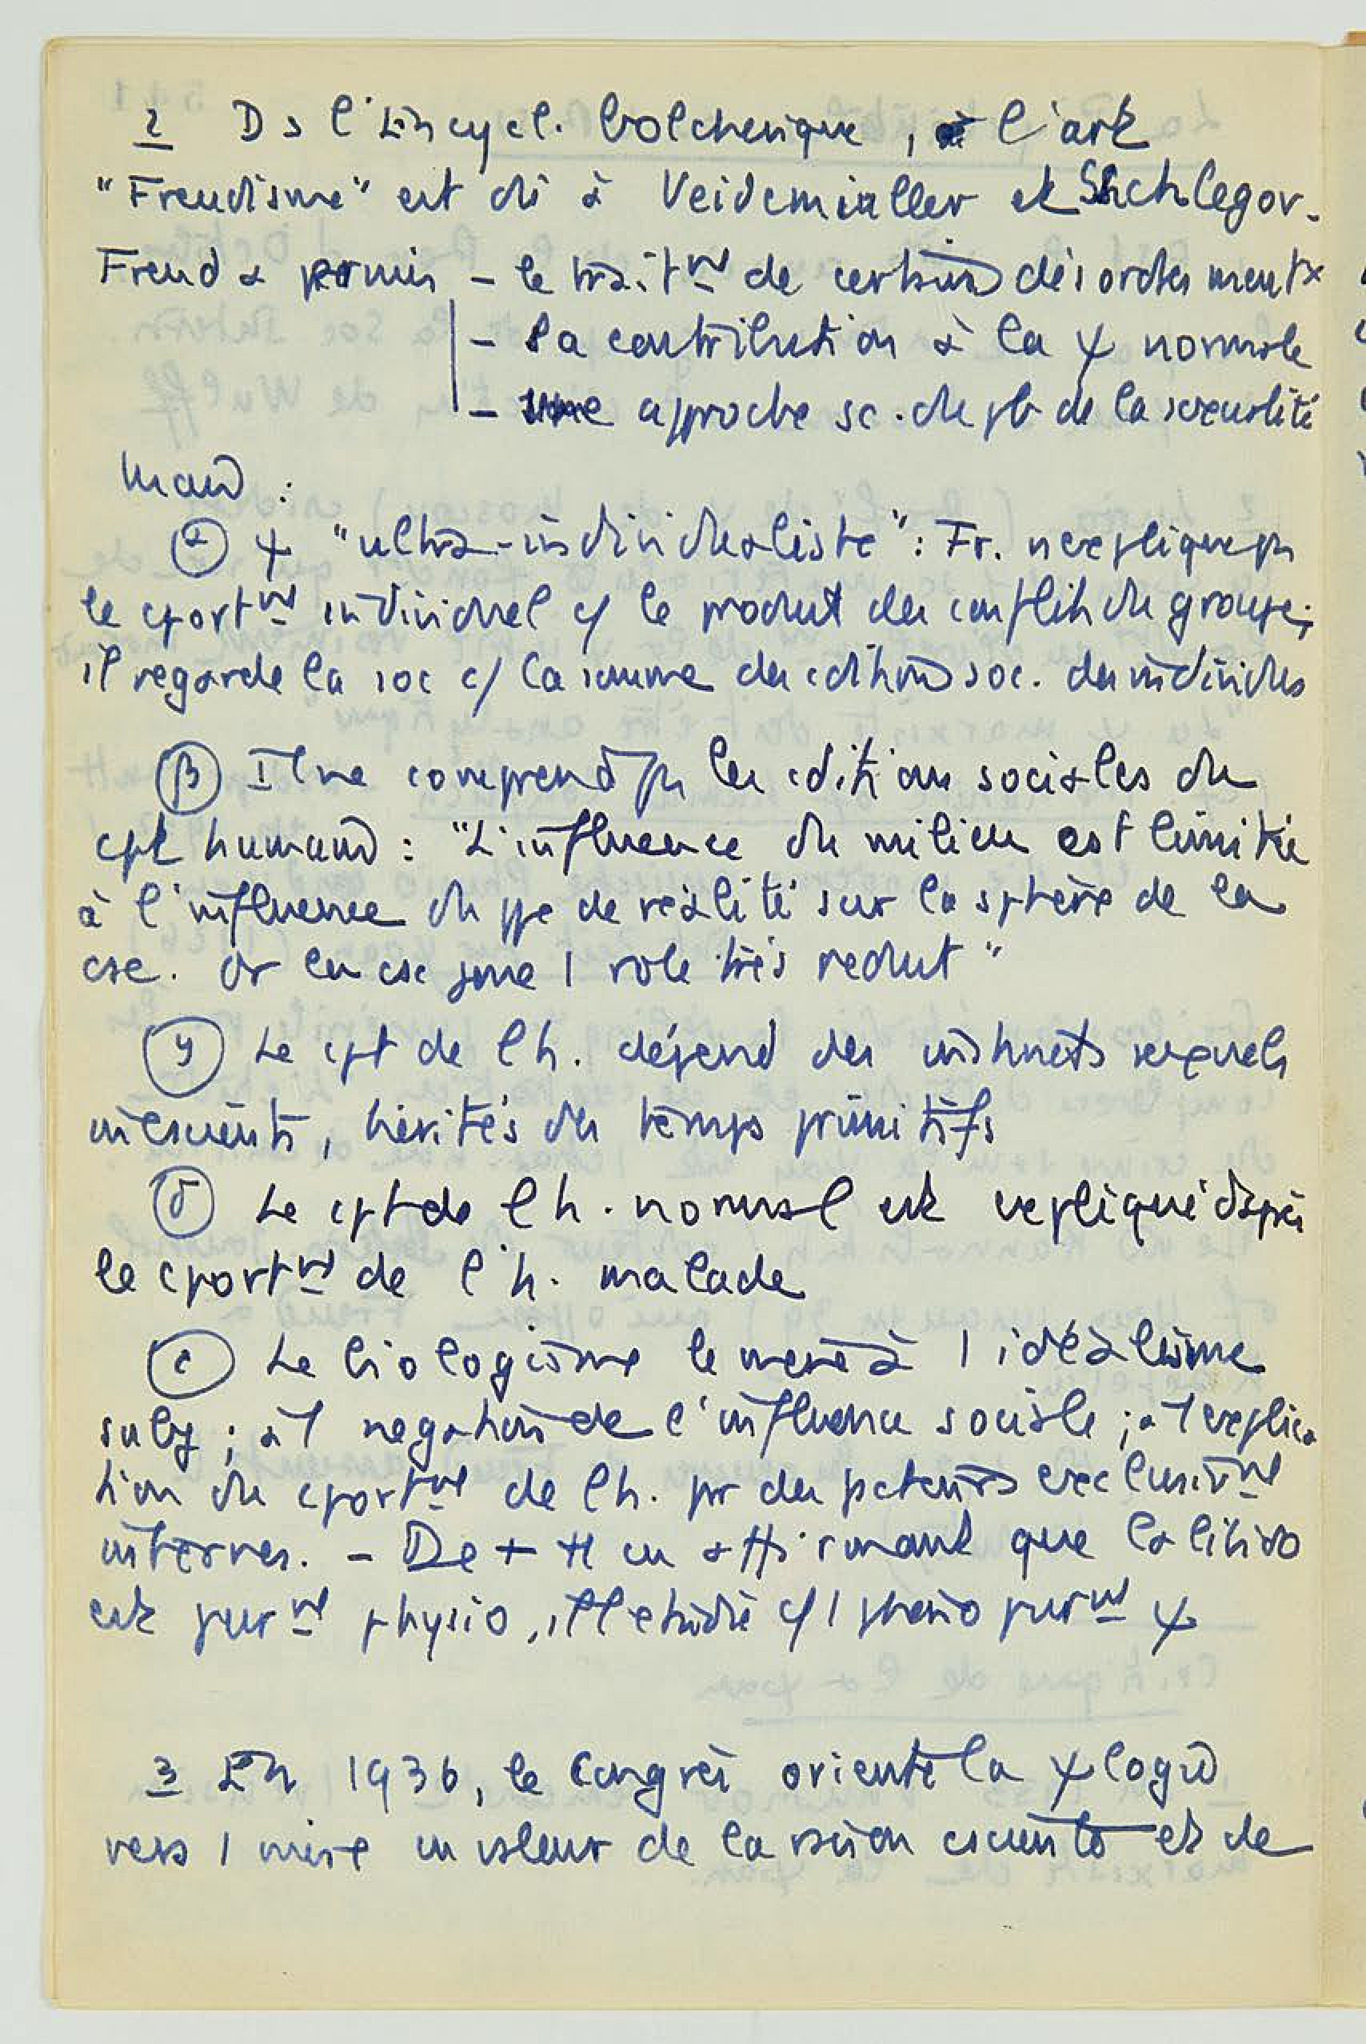 2 Ds l'Encycl. bolchevique, l'art
"Freudisme" est dû à Veidemiuller et Schlegov.
Freud a permis – le trait^mt de certains désordres mentx
– la contribution à la ψ normale
– une approche sc. du pb de la sexualité
mais :
(α) ψ "ultra-individualiste" : Fr. n'explique pas
le cport^mt individuel c/ le produit des conflits du groupe ;
il regarde la soc c/ la somme des cditions soc. des individus
(β) Il ne comprend pas les cditions sociales du
cpt humain : "L'influence du milieu est limitée
à l'influence du ppe de réalité sur la sphère de la
cse. Or la cse joue 1 role très reduit"
(γ) Le cpt de l'h. dépend des instincts sexuels
incscients, hérités des temps primitifs
(δ) Le cpt de l'h. normal est expliqué d'après
le cport^mt de l'h. malade
(ε) Le biologisme le mene à 1 idéalisme
subj ; à 1 negation de l'influence sociale ; à 1 explica
tion du cport^mt de l'h. pr des facteurs exclusiv^mt
internes. – De + tt en affirmant que la libido
est pur^mt physio, il l'étudie c/ 1 phéno pur^mt ψ
3 En 1936, le Congrès oriente la ψlogie
vers 1 mise en valeur de la csciente et de